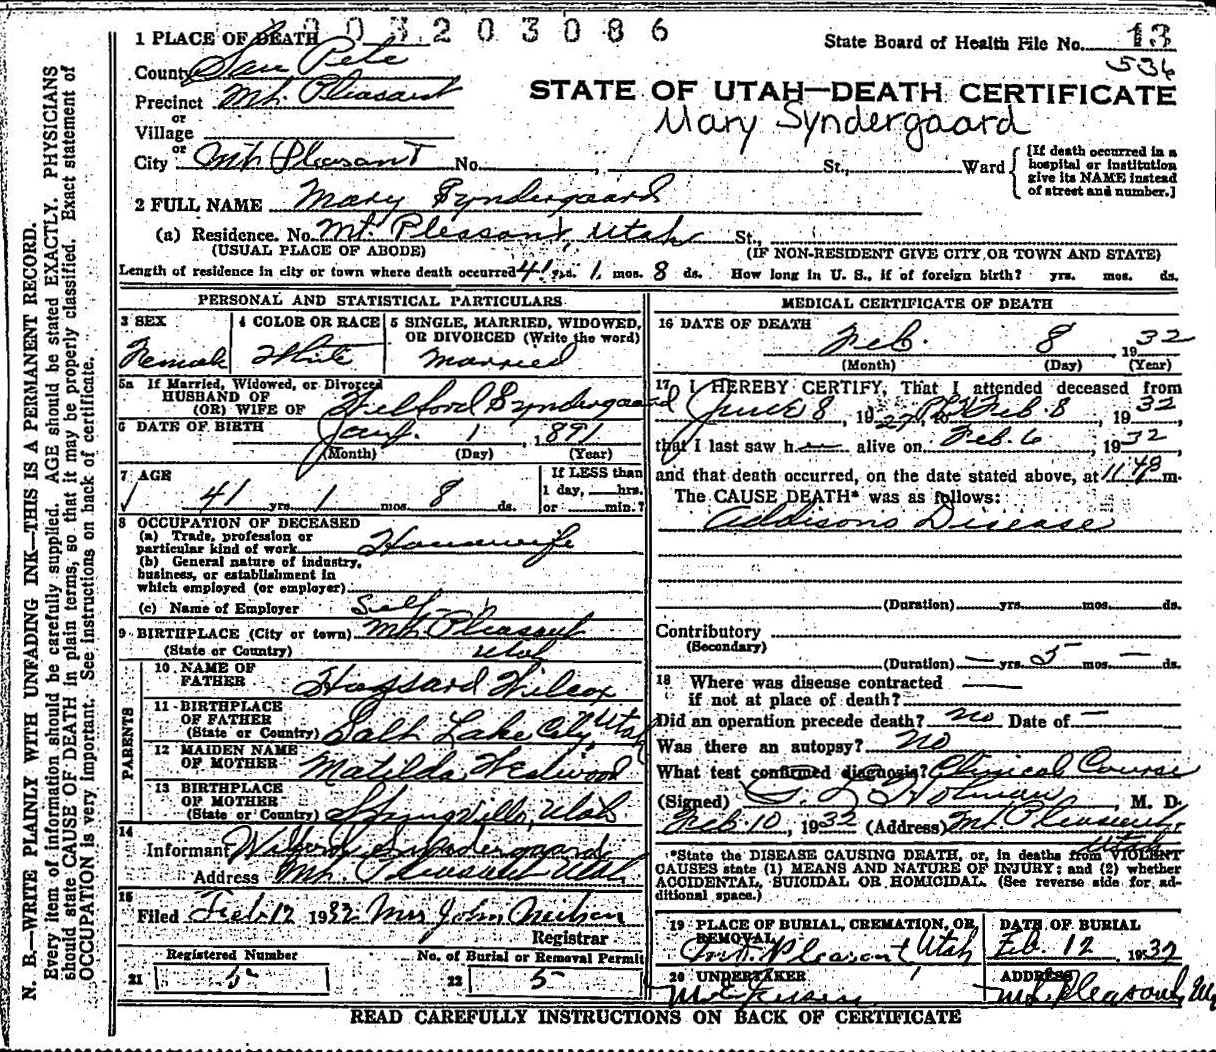 003203086
1 PLACE OF DEATH
State Board of Health File No. 13
536
County San Pete
Precinct Mt. Pleasant
STATE OF UTAH—DEATH CERTIFICATE
Mary Syndergaard
or
Village
or
City Mt Pleasant No. St., Ward
[If death occurred in a hospital or institution give its NAME instead of street and number.]
2 FULL NAME Mary Syndergaard
(a) Residence. No. Mt. Pleasant, Utah St.,
(USUAL PLACE OF ABODE) (IF NON-RESIDENT GIVE CITY OR TOWN AND STATE)
Length of residence in city or town where death occurred 41 yrs. 1 mos. 8 ds. How long in U. S., if of foreign birth? yrs. mos. ds.
PERSONAL AND STATISTICAL PARTICULARS
3 SEX
Female
4 COLOR OR RACE
White
5 SINGLE, MARRIED, WIDOWED, OR DIVORCED (Write the word)
Married
5a If Married, Widowed, or Divorced
HUSBAND OF
(OR) WIFE OF Wilford Syndergaard
6 DATE OF BIRTH Jany. 1, 1891
(Month) (Day) (Year)
7 AGE
41 yrs. 1 mos. 8 ds.
If LESS than
1 day, hrs.
or min.?
8 OCCUPATION OF DECEASED
(a) Trade, profession or
particular kind of work Housewife
(b) General nature of industry,
business, or establishment in
which employed (or employer)
(c) Name of Employer Self
9 BIRTHPLACE (City or town) Mt. Pleasant
(State or Country) Utah
PARENTS
10 NAME OF
FATHER Hazzard Wilcox
11 BIRTHPLACE
OF FATHER
(State or Country) Salt Lake City, Utah
12 MAIDEN NAME
OF MOTHER Matilda Westwood
13 BIRTHPLACE
OF MOTHER
(State or Country) Springville, Utah
14
Informant Wilford Syndergaard
Address Mt. Pleasant Utah
15
Filed Feb 12 1932 Mrs John
Registrar
Registered Number
21 5
No. of Burial or Removal Permit
22 5
MEDICAL CERTIFICATE OF DEATH
16 DATE OF DEATH
Feb. 8, 1932
(Month) (Day) (Year)
17 I HEREBY CERTIFY, That I attended deceased from
June 8, 1927, to Feb. 8, 1932
that I last saw h alive on Feb. 6, 1932
and that death occurred, on the date stated above, at 11:48 m.
The CAUSE DEATH* was as follows:
Addisons Disease
(Duration) yrs. mos. ds.
Contributory
(Secondary)
(Duration) — yrs 5 mos. — ds.
18 Where was disease contracted
if not at place of death?
Did an operation precede death? no Date of —
Was there an autopsy? no
What test confirmed diagnosis? Clinical Course
(Signed) Holman, M. D.
Feb. 10, 1932 (Address) Mt. Pleasant,
Utah
*State the DISEASE CAUSING DEATH, or, in deaths from VIOLENT
CAUSES state (1) MEANS AND NATURE OF INJURY; and (2) whether
ACCIDENTAL, SUICIDAL OR HOMICIDAL. (See reverse side for ad-
ditional space.)
19 PLACE OF BURIAL, CREMATION, OR
REMOVAL
Mt. Pleasant Utah
DATE OF BURIAL
Feb. 12 1932
20 UNDERTAKER
ADDRESS
Mt. Pleasant,
READ CAREFULLY INSTRUCTIONS ON BACK OF CERTIFICATE
N. B.—WRITE PLAINLY WITH UNFADING INK—THIS IS A PERMANENT RECORD.
Every item of information should be carefully supplied. AGE should be stated EXACTLY. PHYSICIANS
should state CAUSE OF DEATH in plain terms, so that it may be properly classified. Exact statement of
OCCUPATION is very important. See instructions on back of certificate.